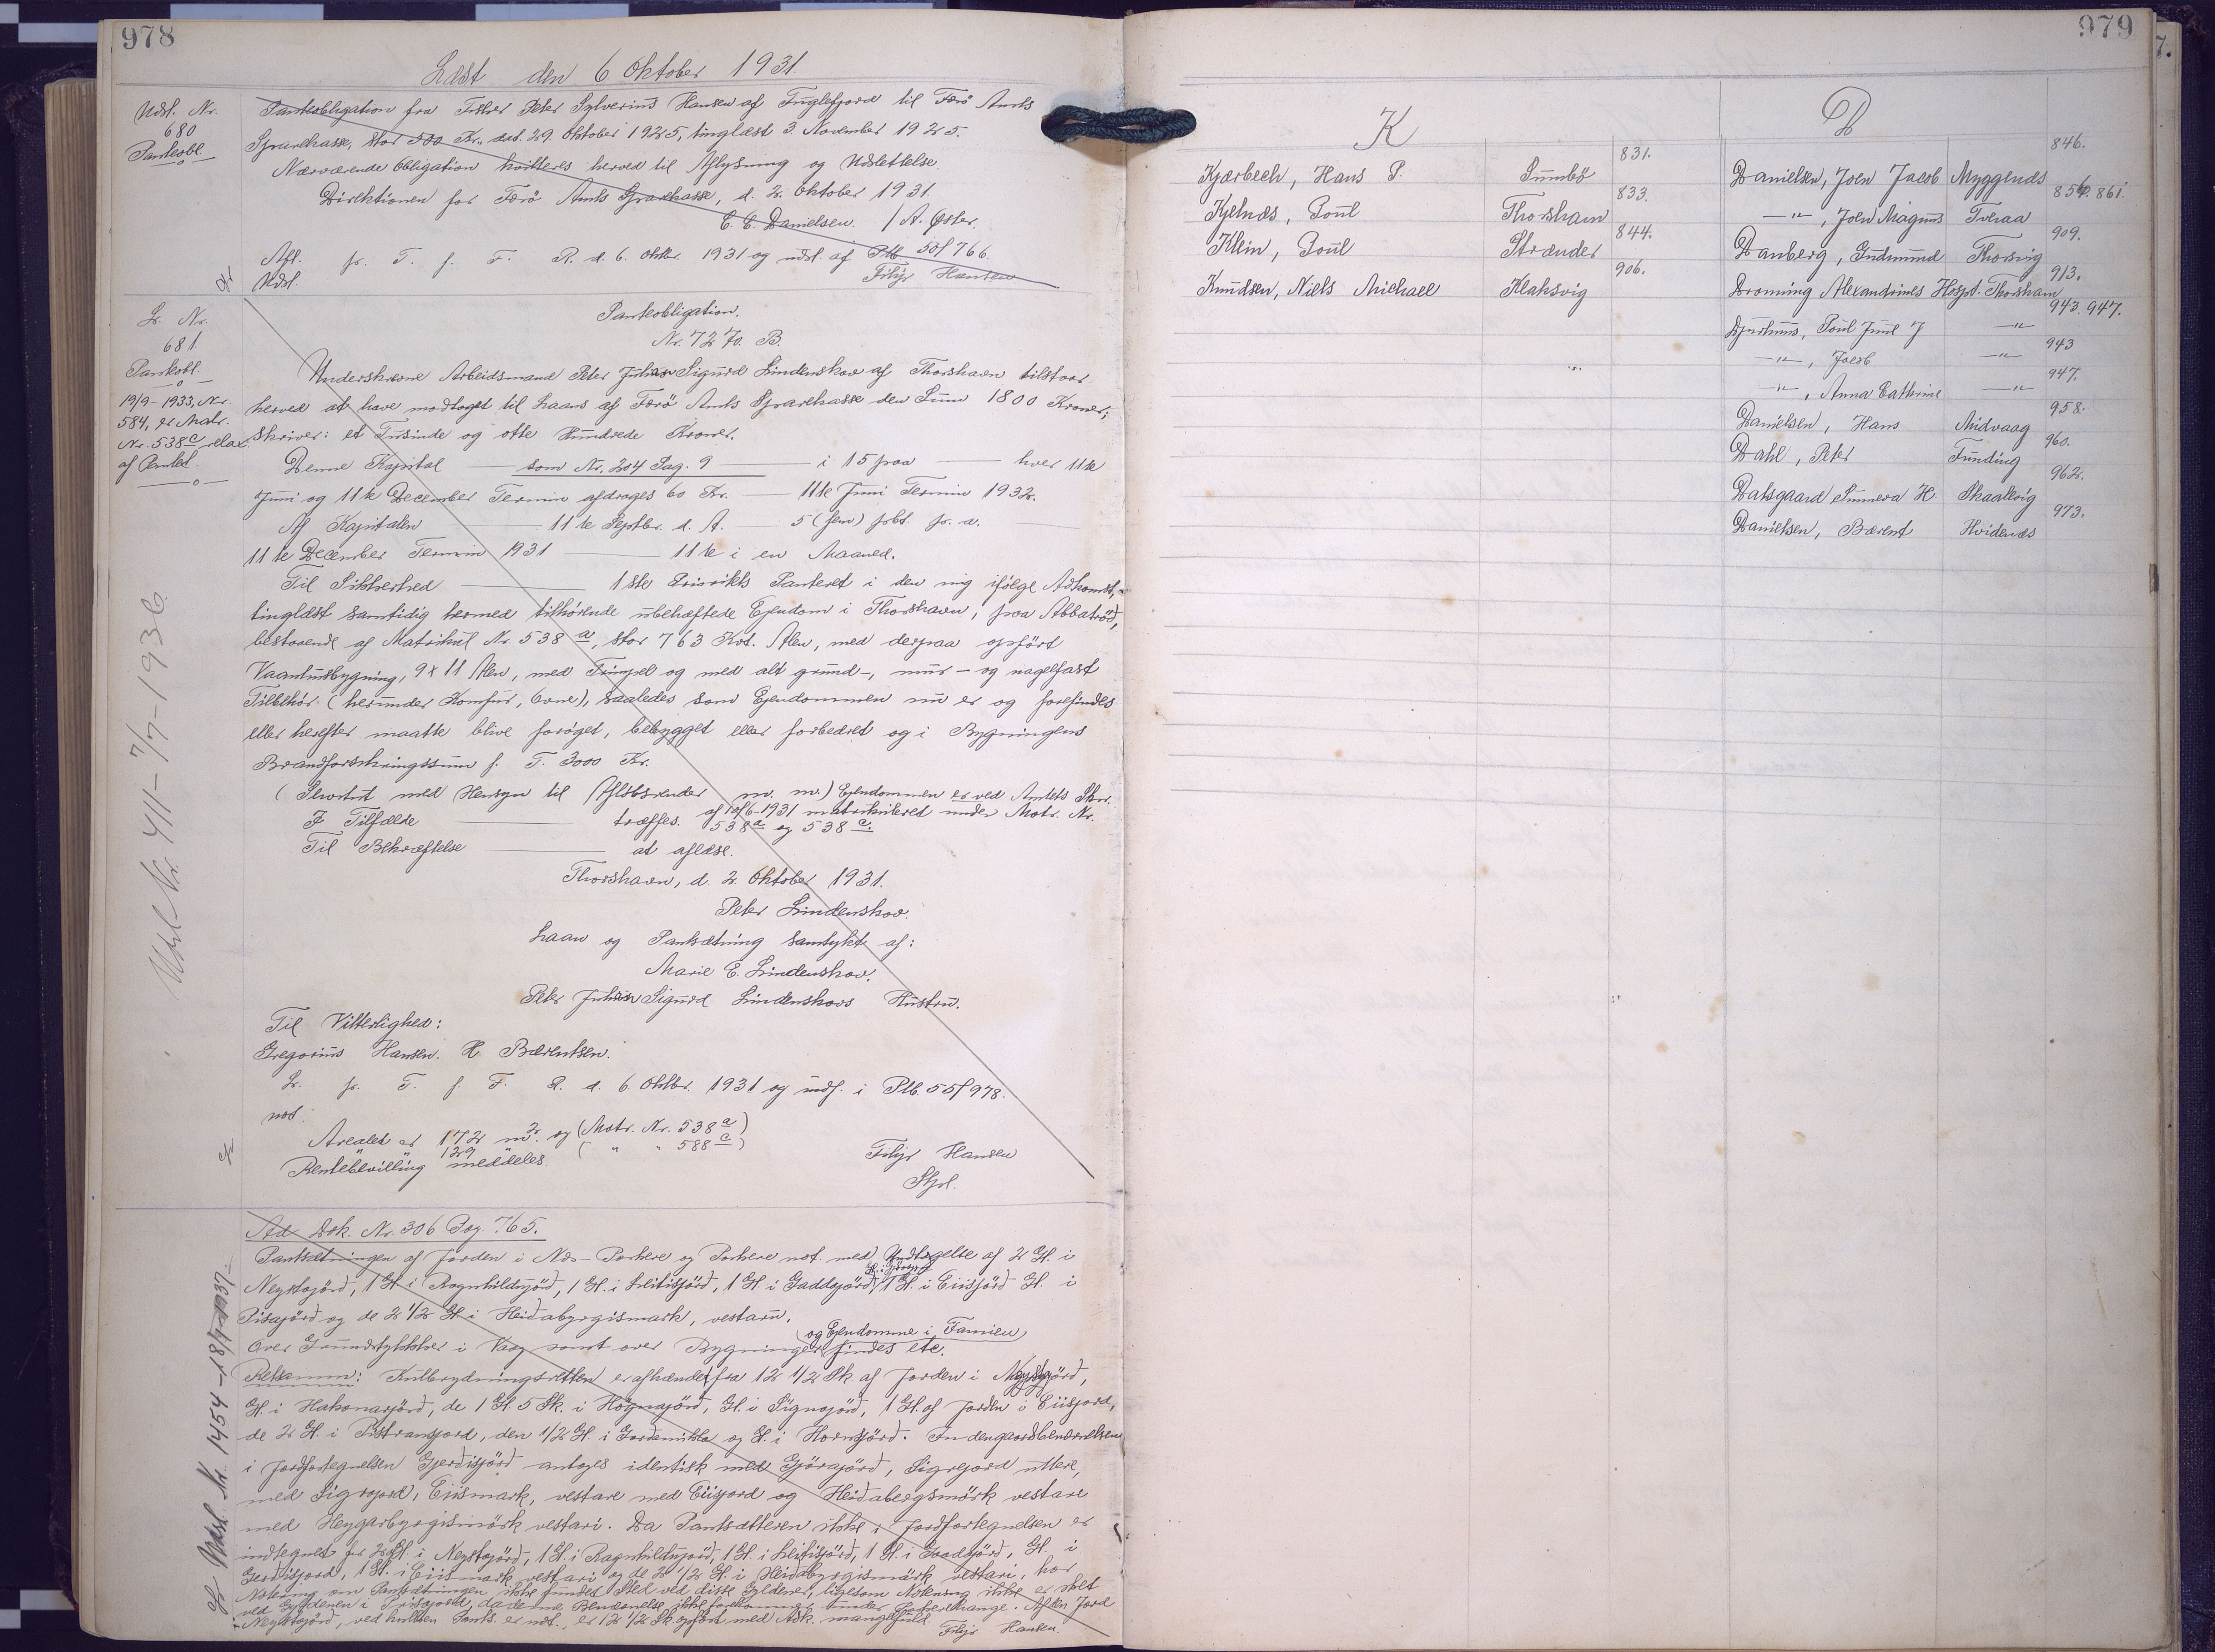 978
Læst den 6 Oktober 1931.
Udsl. Nr.
680
Panteobl.
Panteobligation fra Fisker Peter Sylverius Hansen af Fuglefjord til Færö Amts
Sparekasse, stor 500 Kr., dat. 29 Oktober 1925, tinglæst 3. November 1925.
Nærværende Obligation kvitteres herved til Aflysning og Udslettelse.
Direktionen for Færö Amts Sparekasse, d. 2. Oktober 1931.
C. C. Danielsen. / A. Øster.
Afl. p. T. f. F. R. d. 6. Oktbr. 1931 og udsl. af Ptb 50/766.
Udsl. Filip Hansen
L. Nr.
681.
Panteobl.
19/9-1933, Nr.
584, er Matr.
Nr. 538 c relax.
af Pantet.
Panteobligation.
Nr. 7270. B.
Underskrevne Arbeidsmand Peter Julian Sigurd Lindenskov af Thorshavn tilstaar
herved at have modtaget til Laans af Færö Amts Sparekasse den Sum 1800 Kroner,
skriver: et Tusinde og otte Hundrede Kroner.
Denne Kapital — som Nr. 204 Pag. 9 — i 15 paa — hver 11te
Juni og 11te December Termin afdrages 60 Kr. — 11te Juni Termin 1932.
Af Kapitalen — 11te Septbr. d. A. 5 (fem) pCt. p. a.
11te December Termin 1931 — 11te i en Maaned.
Til Sikkerhed — 1ste Prioritets Panteret i den mig ifölge Adkomst,
tinglæst samtidig hermed tilhörende ubehæftede Ejendom i Thorshavn, paa Abbatröd,
bestaaende af Matrikul Nr. 538 a, stor 763 Kvd. Alen, med derpaa opfört
Vaaninsbygning, 9 x 11 Alen, med Tilbehör og med alt grund-, mur- og nagelfast
Tilbehör (herunder Komfur, Ovne), saaledes som Ejendommen nu er og forefindes
eller herefter maatte blive foröget, bebygget eller forbedret og i Bygningens
Brandforsikringssum p. T. 3000 Kr.
( Sluttet med Hensyn til Aflöbsrender m. m.) Ejendommen er ved Amtets Skr.
I Tilfælde — træffes. af 19/6-1931 matrikuleret under Matr. Nr.
538 a og 538 c.
Til Bekræftelse — at aflæse.
Thorshavn, d. 2. Oktober 1931.
Peter Lindenskov.
Laan og Pantsætning samtykt af:
Marie E. Lindenskov.
Peter Julian Sigurd Lindenskovs Hustru.
Til Vitterlighed:
Gregorius Hansen. H. Bærentsen.
L. p. T. f. F. R. d. 6 Oktbr. 1931 og indf. i Ptb. 55/978.
not.
Arealet er 172 m². og (Matr. Nr. 538 a)
" " 129 ( " " 588 c)
Rentebevilling meddeles
Filip Hansen
Stpl.
Udsl Nr. 411 - 7/7-1936.
Ad Dok. Nr. 306 Pag. 765.
Pantsætningen af Jorden i Nes-Porkere og Porkere not. med Undtagelse af 2 Gl. i
Neystajörd, 1 Gl. i Ragnhildsjörd, 1 Gl. i Leitisjörd, 1 Gl. i Gaddajörd, 1 Gl. i Eiisjörd Gl. i
Pisajörd og de 2 1/2 Gl. i Heidabyrgismark, vestaru.
og Ejendomme i Famien
Over Grundstykker i Vaag samt over Bygninger findes etc.
Retsanm: Kulbrydningsretten er afhændet fra 12 1/2 Sk af Jorden i Neystajörd,
Gl. i Hakonarjörd, de 1 Gl 5 Sk. i Högnajörd, Gl. i Signajörd, 1 Gl. af Jorden i Eiisjord,
de 2 Gl. i Pistransjord, den 1/2 Gl. i Gardamikla og Gl. i Hornsjörd. Indengaardbenævnelsen
i Jordfortegnelsen Gjerdisjörd antages identisk med Gjörajörd, Sigrejord uttere,
med Sigrajord, Eiismark, vestare med Eiisjord og Heidabergsmörk vestare
med Heygarbyrgismörk vestari. Da Pantsætteren ikke i Jordfortegnelsen er
indtegnet for 2 Gl. i Neystajörd, 1 Gl. i Ragnhildsjord, 1 Gl. i Leitisjörd, 1 Gl. i Gaddajörd, Gl. i
Gerdisjord, 1 Gl. i Eiismark vestari og de 2 1/2 Gl. i Heidabyrgismark vestari, har
Notering om Pantsætningen ikke fundet Sted ved disse Gyldener, ligesom Notering ikke er sket
ved Gyldenen i Pisajord, da denne Benævnelse ikke forekommer under Porkerehauge. Af den Jord
i Neystajörd, ved hvilken Pants. er not., er 12 1/2 Sk opfört med Adk. mangelfuld
Filip Hansen.
Udsl. Nr. 1454 - 18/9-1937
979
K
Kjærbech, Hans P. Sumbö 831.
Kjelnæs, Poul Thorshavn 833.
Klein, Poul Strænder 844.
Knudsen, Niels Michael Klaksvig 906.
D
Danielsen, Joen Jacob Myggenæs 846.
—"—, Joen Magnus Tveraa 856. 861.
Danberg, Gudmund Thorsvig 909.
Dronning Alexandrines Hospt. Thorshavn 913.
Djurhuus, Poul Juul J —"— 943. 947.
—"—, Jacob —"— 943
—"—, Anna Cathrine —"— 947.
Danielsen, Hans Midvaag 958.
Dahl, Peter Funding 960.
Dalsgaard Sunneva H. Skaalevig 962.
Danielsen, Bærent Hvidenæs 973.